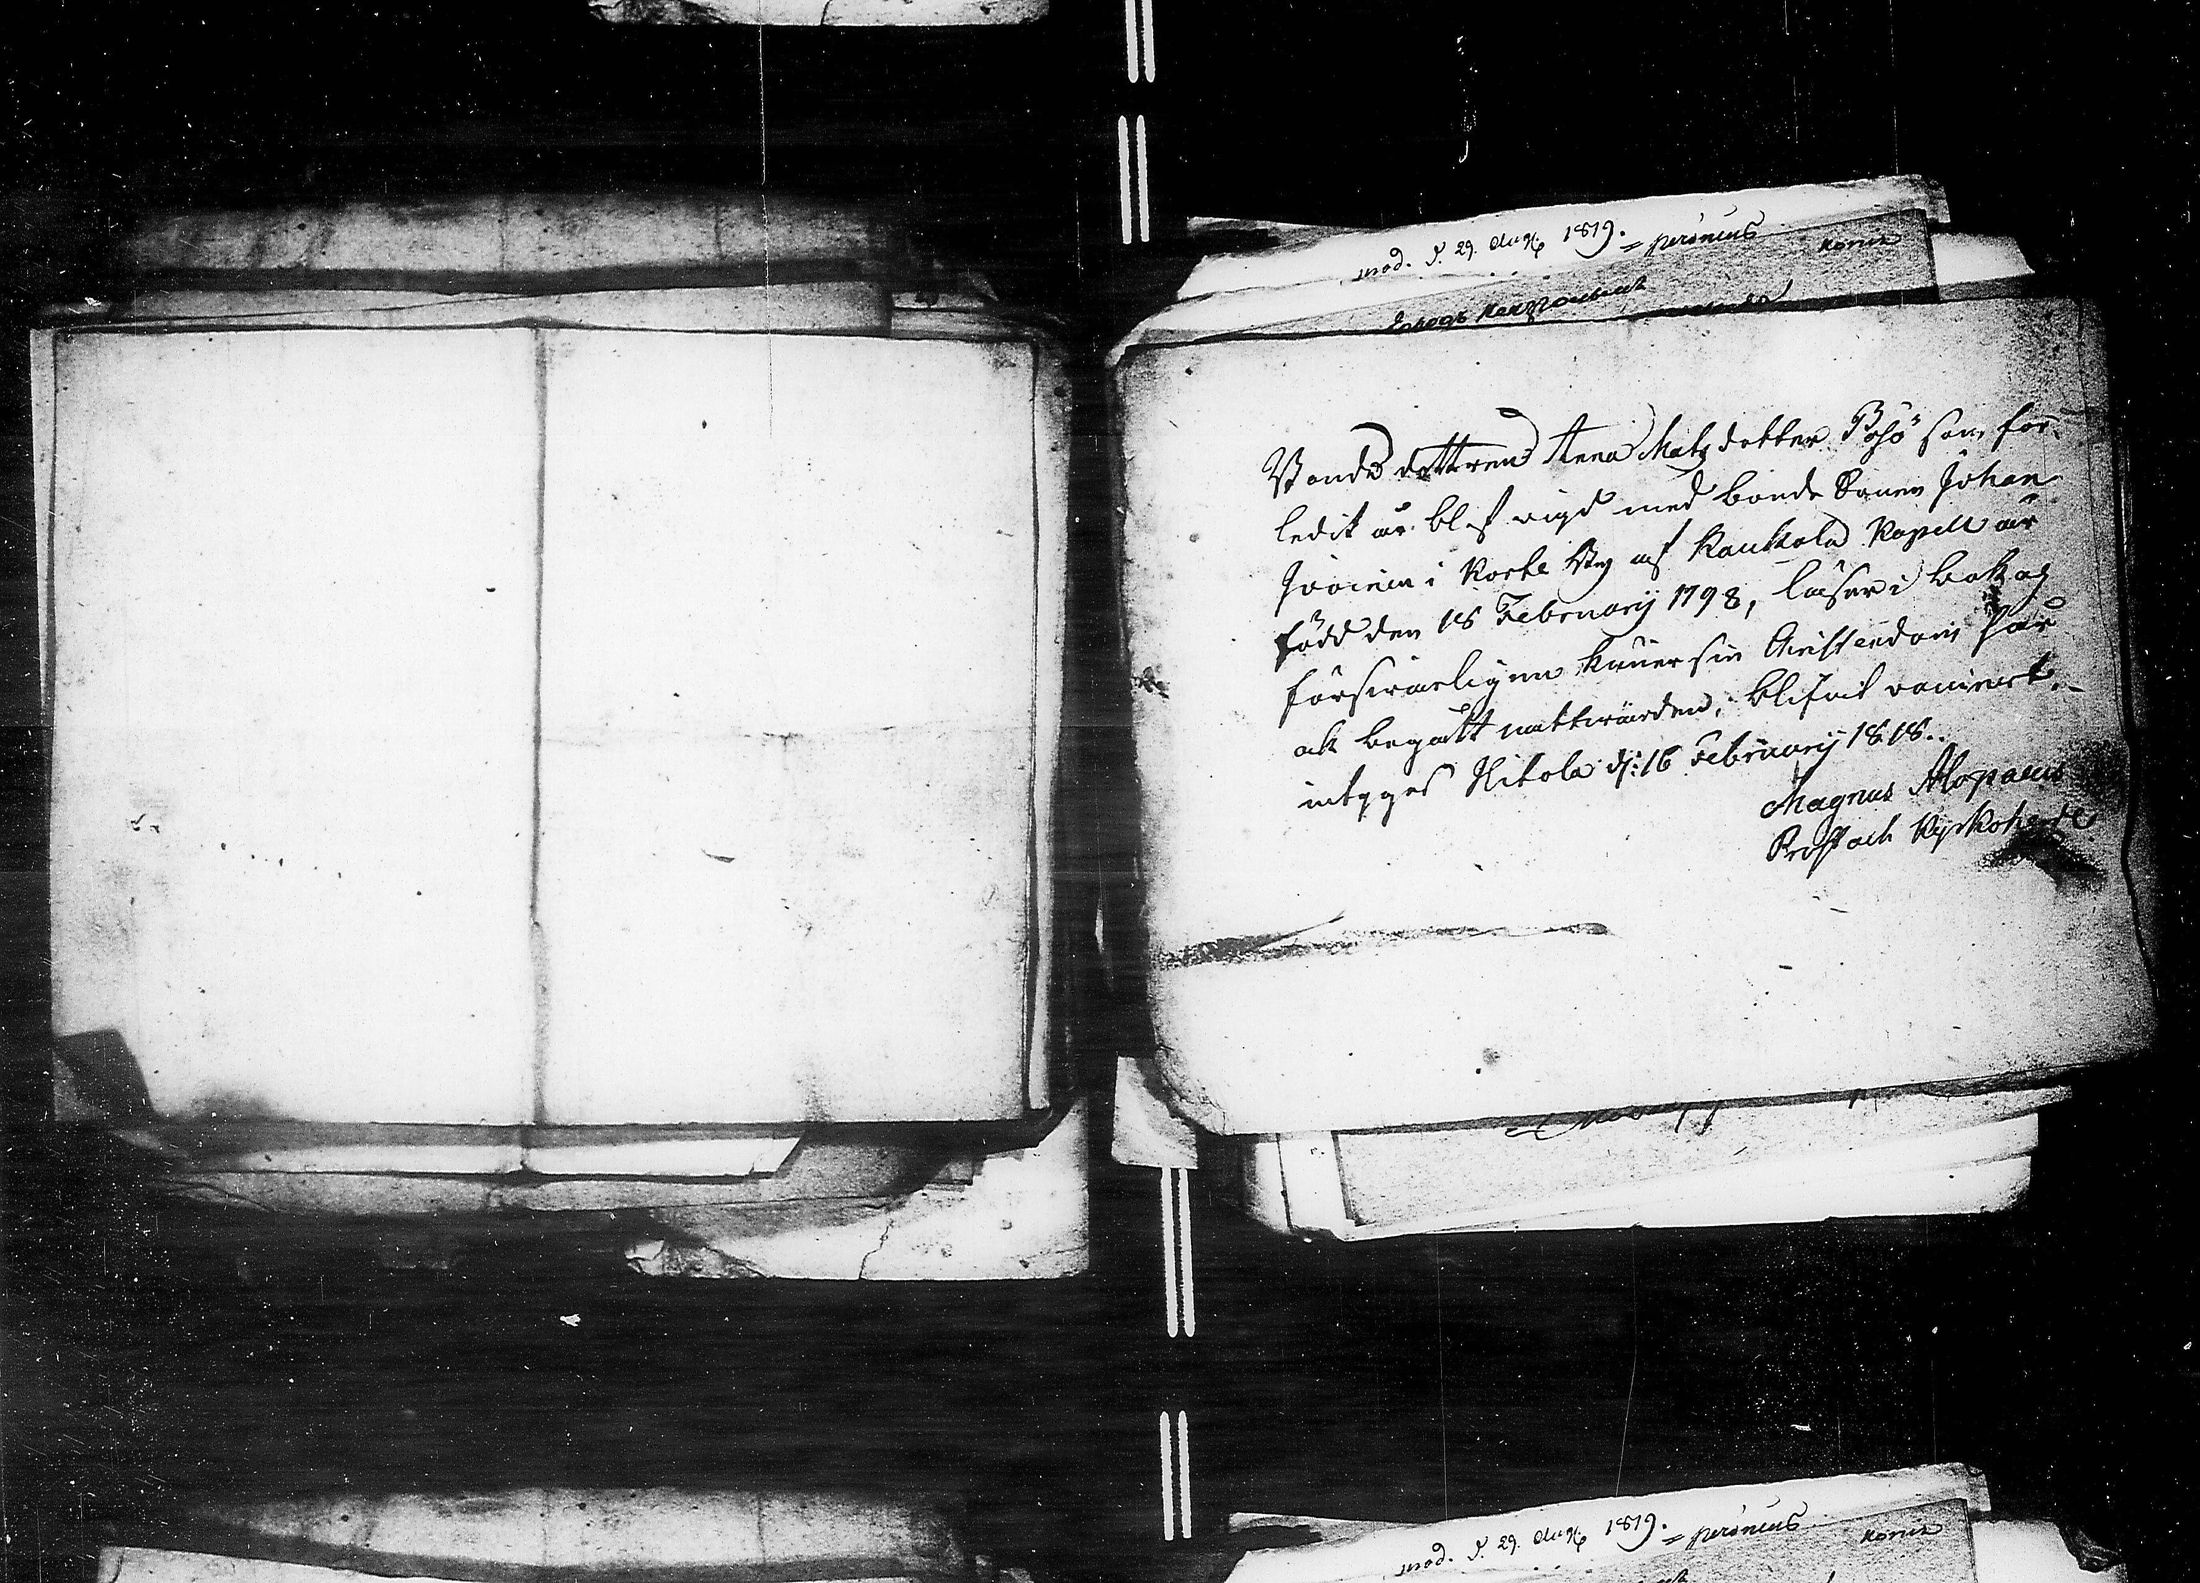 mod. d. 29. Aug. 1819.
Bonde dottren Anna Matsdotter Pösö som för
ledit år blef wigd med bonde Sonen Johan
i Koske By af Kaukola Kapell är
född den 18 Februarij 1798, läser i bok og
försvarligen kunner sin Christendom har
ock begått nattvarden, blifvit vaccinert.
intygas Hitola d: 16 Februarij 1818.
Magnus Alopaeus
Prost och Kyrkoherde
mod. d. 29. Aug. 1819.